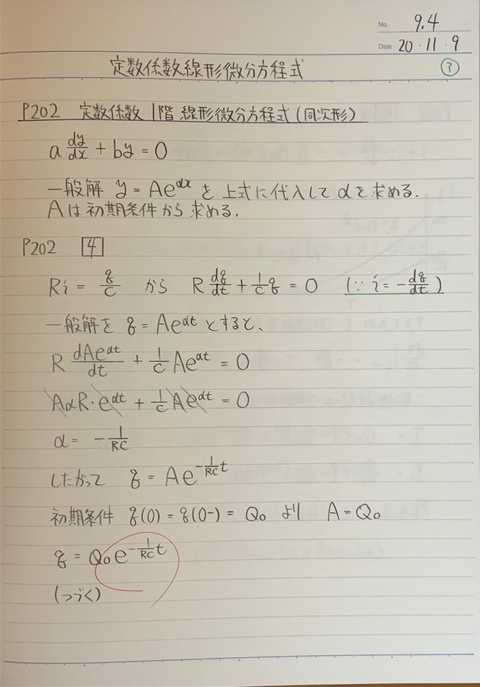 No. 9.4
Date 20・11・9
定数係数線形微分方程式 ⑦
P202 定数係数 1階 線形微分方程式(同次形)
a dy/dx + by = 0
一般解 y = Ae^αx を上式に代入して αを求める.
Aは初期条件から求める.
P202 [4]
Ri = q/C から R dq/dt + 1/C q = 0 (∵ i = -dq/dt)
一般解を q = Ae^αt とすると、
R dAe^αt/dt + 1/C Ae^αt = 0
AαR・e^αt + 1/C Ae^αt = 0
α = - 1/RC
したがって q = Ae^-1/RC t
初期条件 q(0) = q(0-) = Q0 より A = Q0
q = Q0 e^-1/RC t
(つづく)